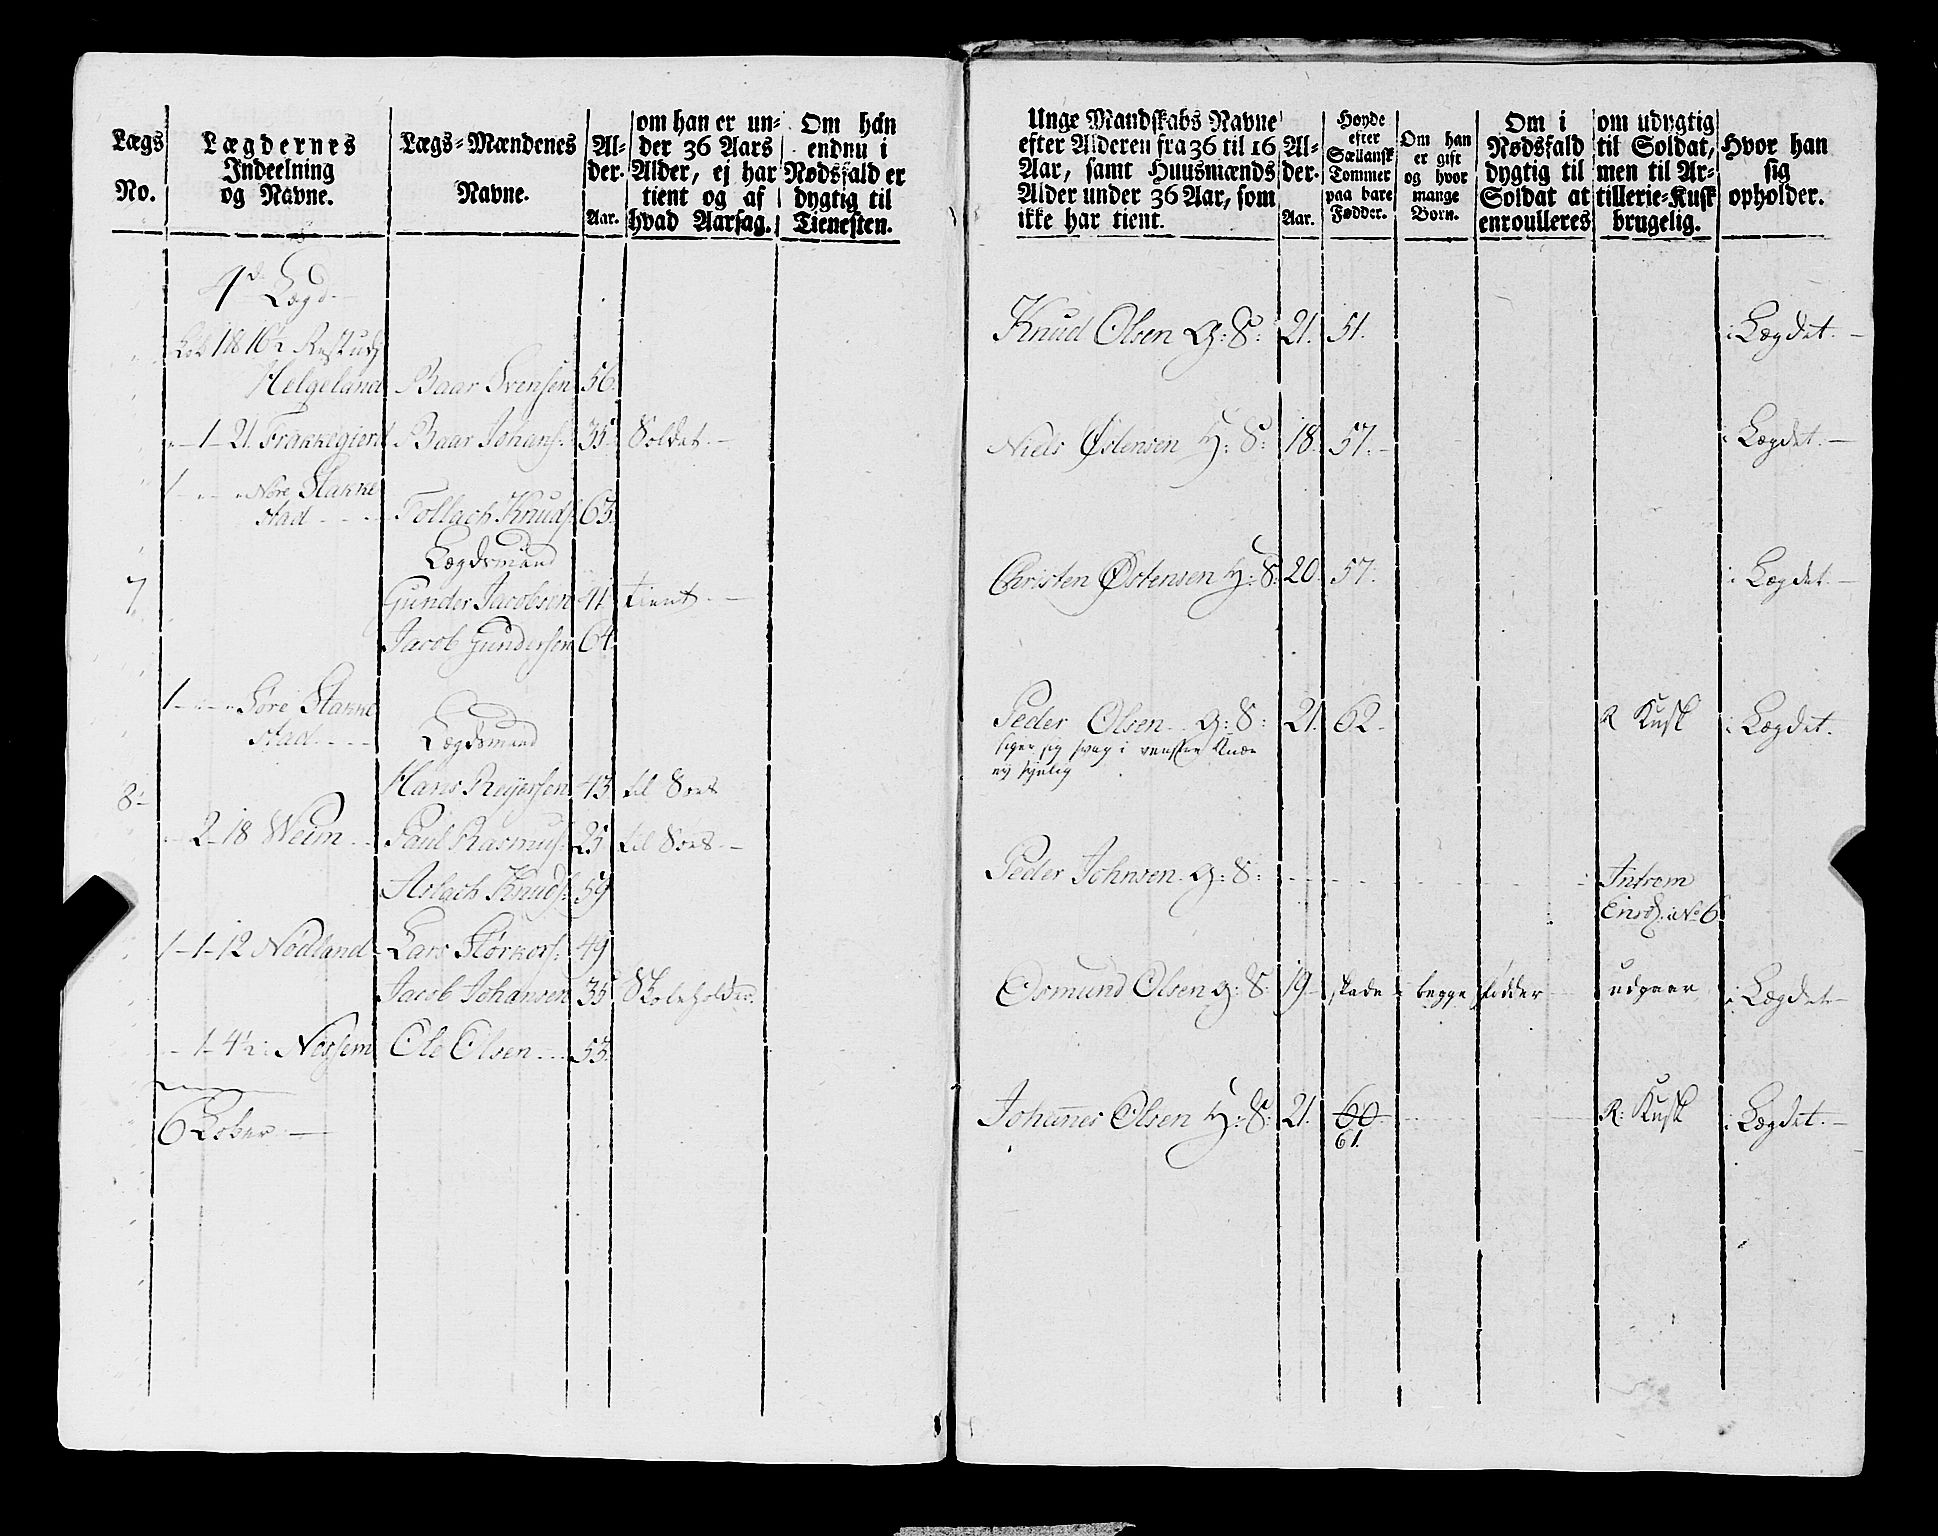 Lægs No.
Lægdernes Indeelning og Navne.
Lægs-Mændenes Navne.
Alder. Aar.
om han er under 36 Aars Alder, ej har tient og af hvad Aarsag.
Om han endnu i Nødsfald er dygtig til Tienesten.
4de Lægd.
18 16½
Helgeland Baar Svensen 56.
1 21. Frakkegierd Baar Johans: 35. Soldat.
1 Nore Stakke
stad Tollach Knuds: 63.
Lægdsmand
7 Gunder Jacobsen 41. tient.
Jacob Gundersen 64.
1 Søre Stakke
stad Lægdsmand
8 Hans Reyersen 43 til Søes
2 18 Weim Paul Rasmus: 25 til Søes
Aslach Knuds: 59
1 1 12 Nodland Lars Størkers: 49
Jacob Johansen 35 Skoleholder.
1 4½ Nessem Ole Olsen 53.
6 Løber
Unge Mandskabs Navne efter Alderen fra 36 til 16 Aar, samt Huusmænds Alder under 36 Aar, som ikke har tient.
Alder. Aar.
Høyde efter Sællansk Tommer paa bare Fødder.
Om han er gift og hvor mange Børn.
Om i Nødsfald dygtig til Soldat at enroulleres
om udygtig til Soldat, men til Artillerie-Kusk brugelig.
Hvor han sig opholder.
Knud Olsen G: S: 21. 51. i Lægdet.
Niels Østensen H: S: 18. 57. i Lægdet.
Christen Østensen H: S: 20. 57. i Lægdet.
Peder Olsen G: S: 21. 62. R Kusk i Lægdet.
siger sig svag i venstre Knæe
ey synlig
Peder Johnsen G: S: Antrom
No 6
Osmund Olsen G: S: 19. skade i begge fødder udgaar i Lægdet
Johannes Olsen H: S: 21. 60. R: Kusk i Lægdet.
61.